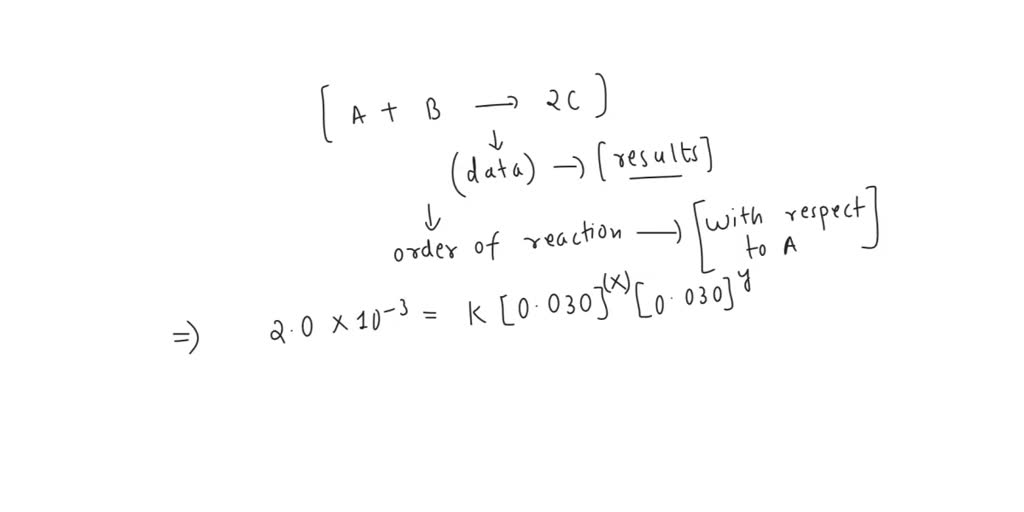 [ A + B ⟶ 2C ]
↓
(data) → [results]
↓
order of reaction ⟶ [with respect
to A ]
⇒) 2.0 × 10⁻³ = K [0.030]⁽ˣ⁾ [0.030]ʸ